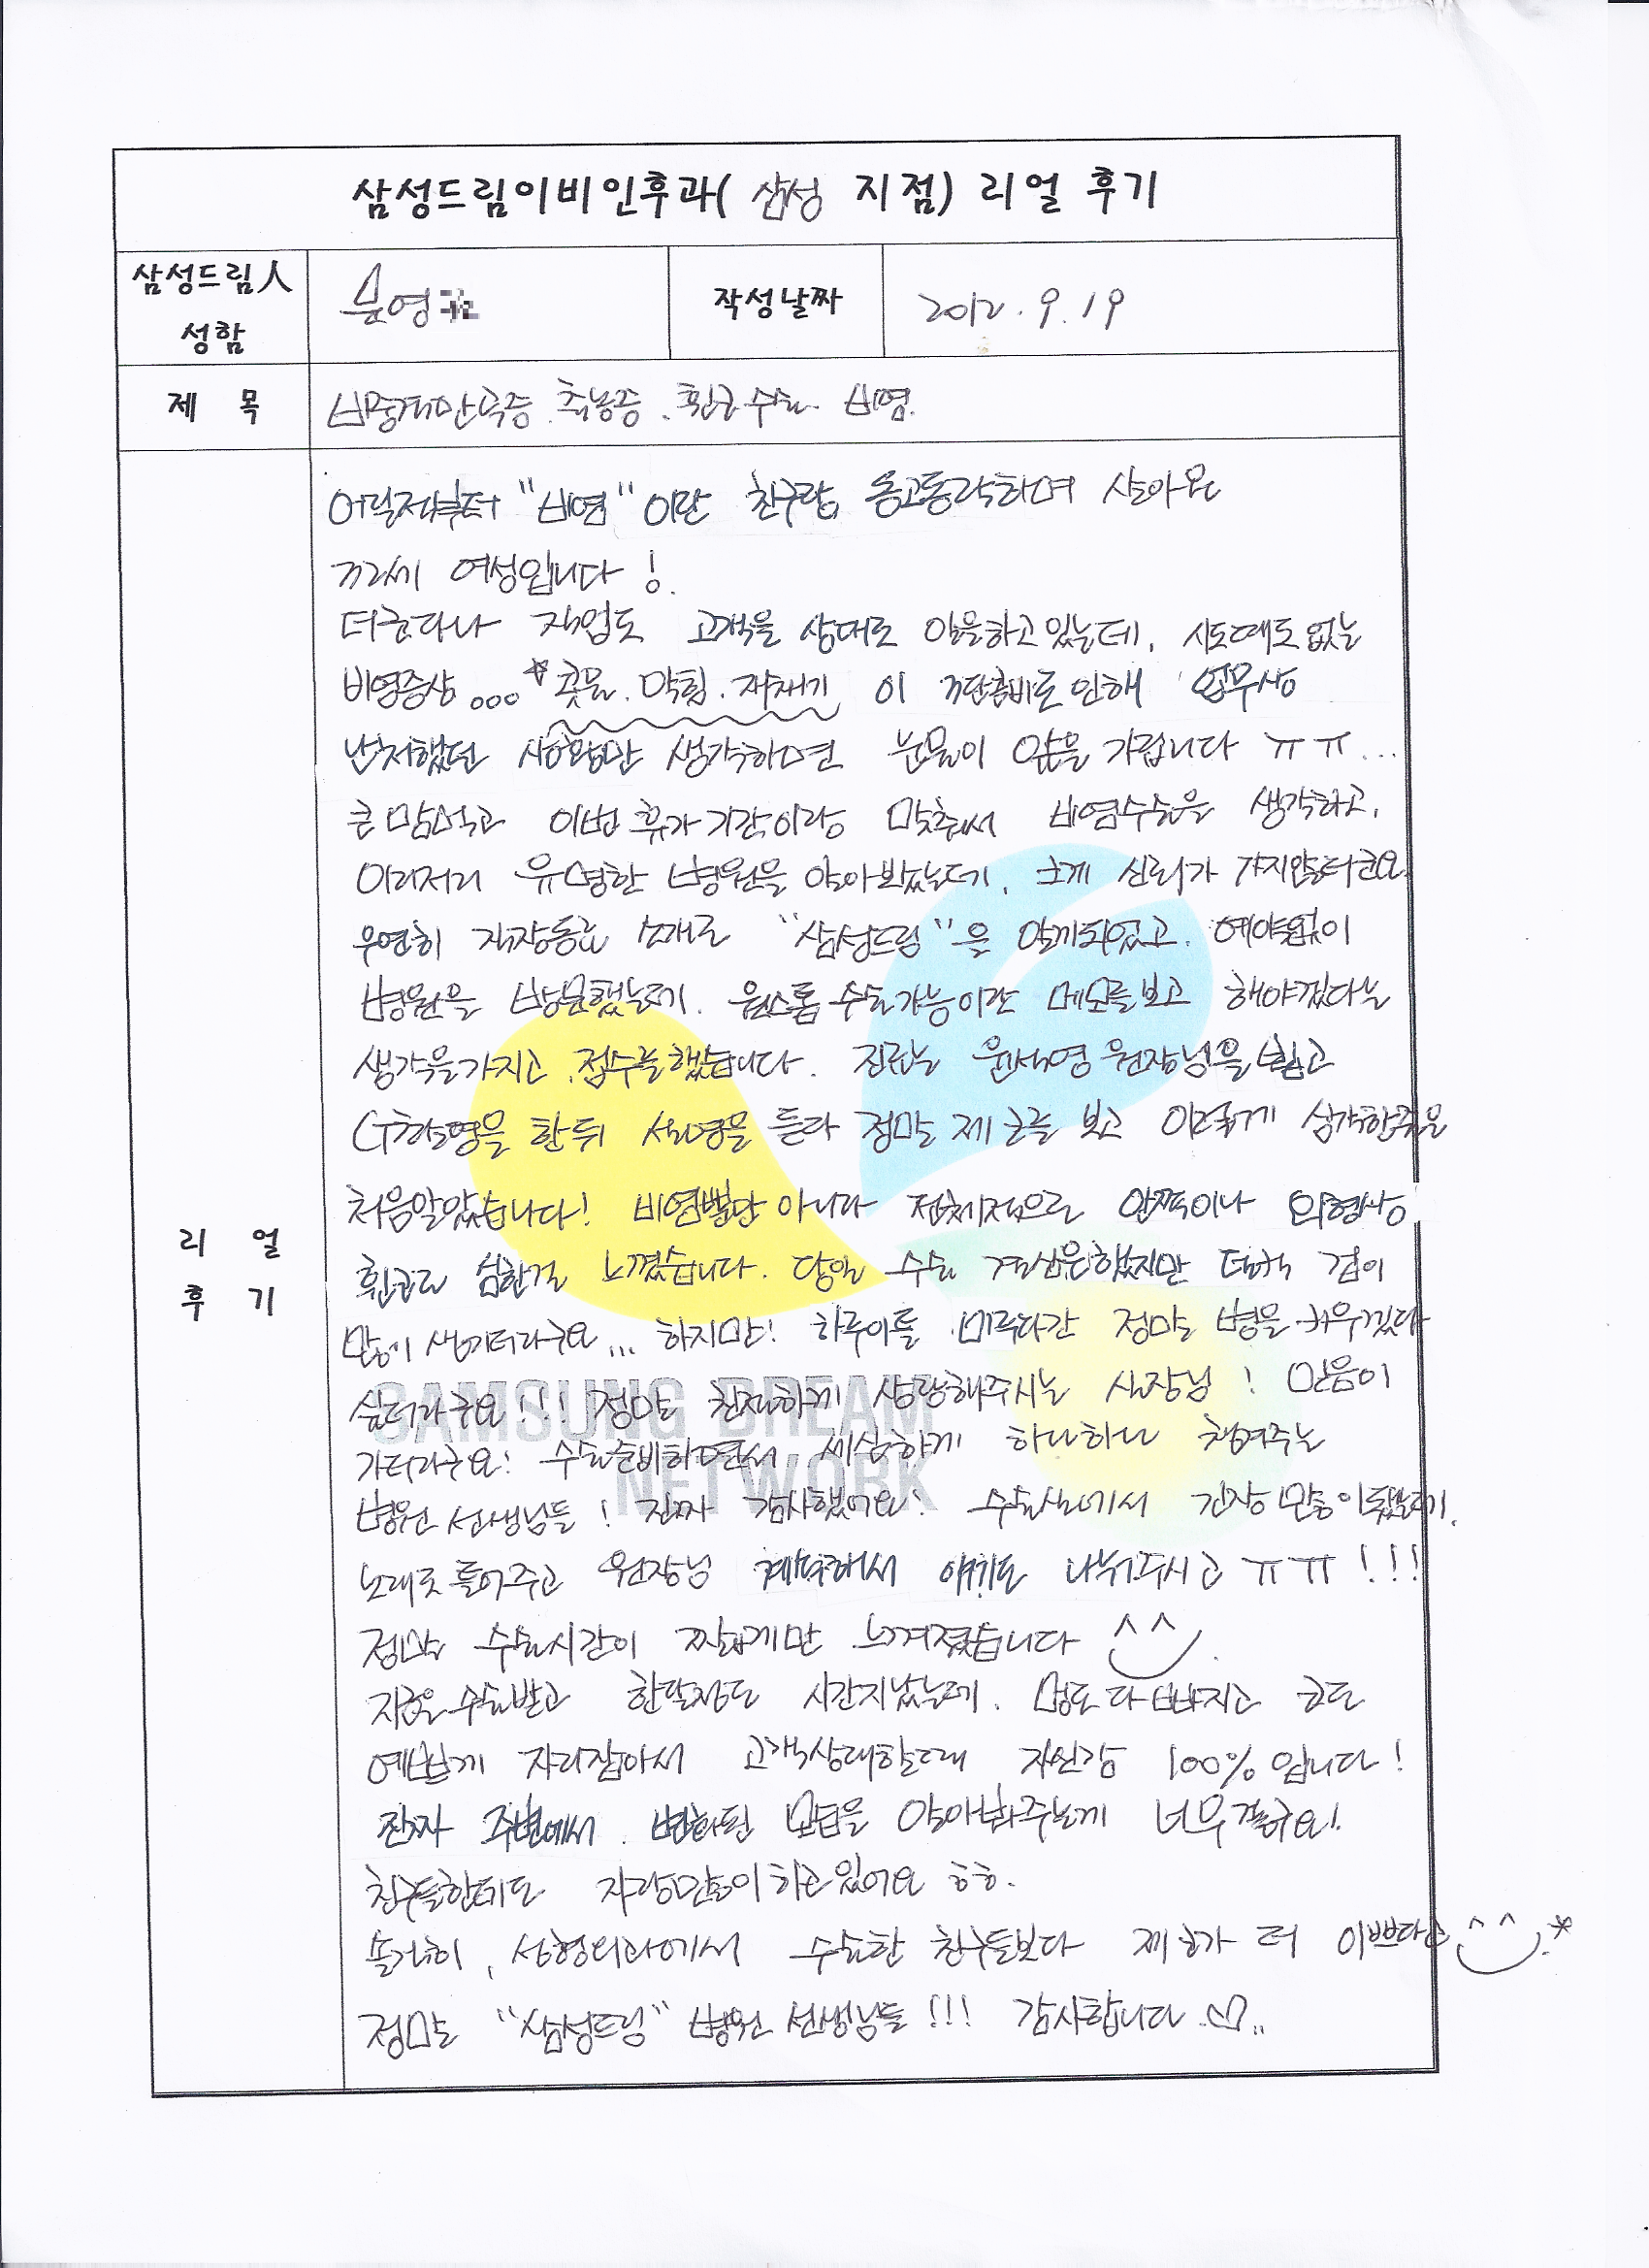 삼성드림이비인후과( 삼성 지점) 리얼 후기
삼성드림人
성함
영
작성날짜
2012. 9. 19
제 목
비중격만곡증. 축농증. 휜코수술. 비염.
어릴적부터 "비염"이란 친구랑 동고동락하며 살아온
여성입니다!
더군다나 직업도 고객을 상대로 일을하고있는데, 시도때도없는
비염증상... *콧물. 막힘. 재채기 이 3단콤비로인해 업무상
난처했던 상황만 생각하면 눈물이 앞을 가립니다 ㅠㅠ...
큰맘먹고 이번휴가기간이랑 맞춰서 비염수술을 생각하고,
이리저리 유명한 병원을 알아봤는데, 크게 신뢰가 가지않터군요
우연히 직장동료 소개로 "삼성드림"을 알게되었고, 예약없이
병원을 방문했는데, 원스톱수술가능이란 메모를보고 해야겠다는
생각을가지고 접수를했습니다. 진료는 원장님을 뵙고
CT촬영을 한뒤 설명을 듣다 정말 제 코를 보고 이렇게 심각한줄은
처음알았습니다! 비염뿐만 아니라 전체적으로 안쪽이나 외형상
휜코로 심한걸 느꼈습니다. 당일 수술 결심은했지만 덜컥 겁이
많이 생기더라구요... 하지만! 하루이틀 미루다간 정말 병을 키우겠다
싶더라구요!!! 정말 친절하게 상담해주시는 실장님! 믿음이
가더라구요! 수술준비하면서 세심하게 하나하나 챙겨주는
병원선생님들! 진짜 감사했어요! 수술실에서 긴장많이됐는데,
노래도 틀어주고 원장님 계속해서 얘기도 나눠주시고 ㅠㅠ!!!
정말 수술시간이 짧게만 느껴졌습니다 ^^
지금은 수술받고 한달정도 시간지났는데, 멍도 다 빠지고 코도
예쁘게 자리잡아서 고객상대할때 자신감 100%입니다!
진짜 주변에서 변화된 모습을 알아봐주는게 너무좋구요!
친구들한테도 자랑많이하고있어요 ㅎㅎ.
솔직히, 성형외과에서 수술한 친구들보다 제코가 더 이쁘다는 ^^*
정말 "삼성드림" 병원 선생님들!!! 감사합니다 ♡..
리 얼
후 기
SAMSUNG DREAM
NETWORK